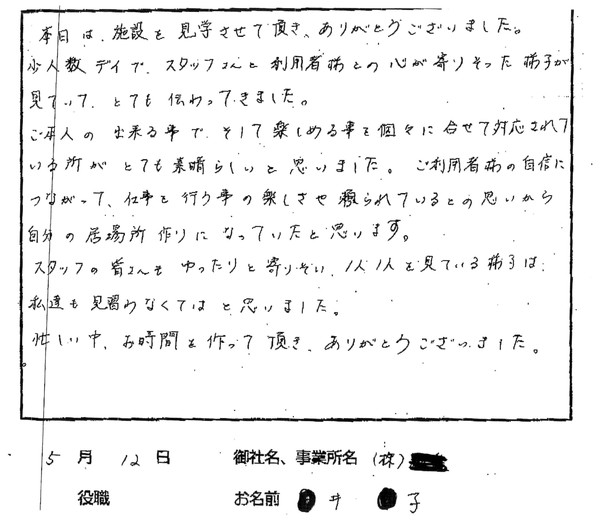 本日は、施設を見学させて頂き、ありがとうございました。
少人数デイで、スタッフさんと利用者様との心が寄りそった様子が
見ていて、とても伝わってきました。
ご本人の出来る事で、そして楽しめる事を個々に合せて対応されて
いる所がとても素晴らしいと思いました。ご利用者様の自信に
つながって、仕事を行う事の楽しさせ頼られているとの思いから
自分の居場所作りになっていたと思います。
スタッフの皆さんもゆったりと寄りそい、1人1人を見ている様子は、
私達も見習わなくてはと思いました。
忙しい中、お時間を作って頂き、ありがとうございました。
5月12日 御社名、事業所名 (株)
役職 お名前 井 子